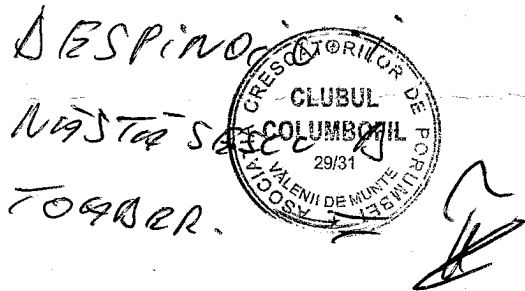 DESPINOIU I
NĂSTĂSESCU D
ASOCIAȚIA CRESCĂTORILOR DE PORUMBEI
CLUBUL
COLUMBOFIL
29/31
VĂLENII DE MUNTE